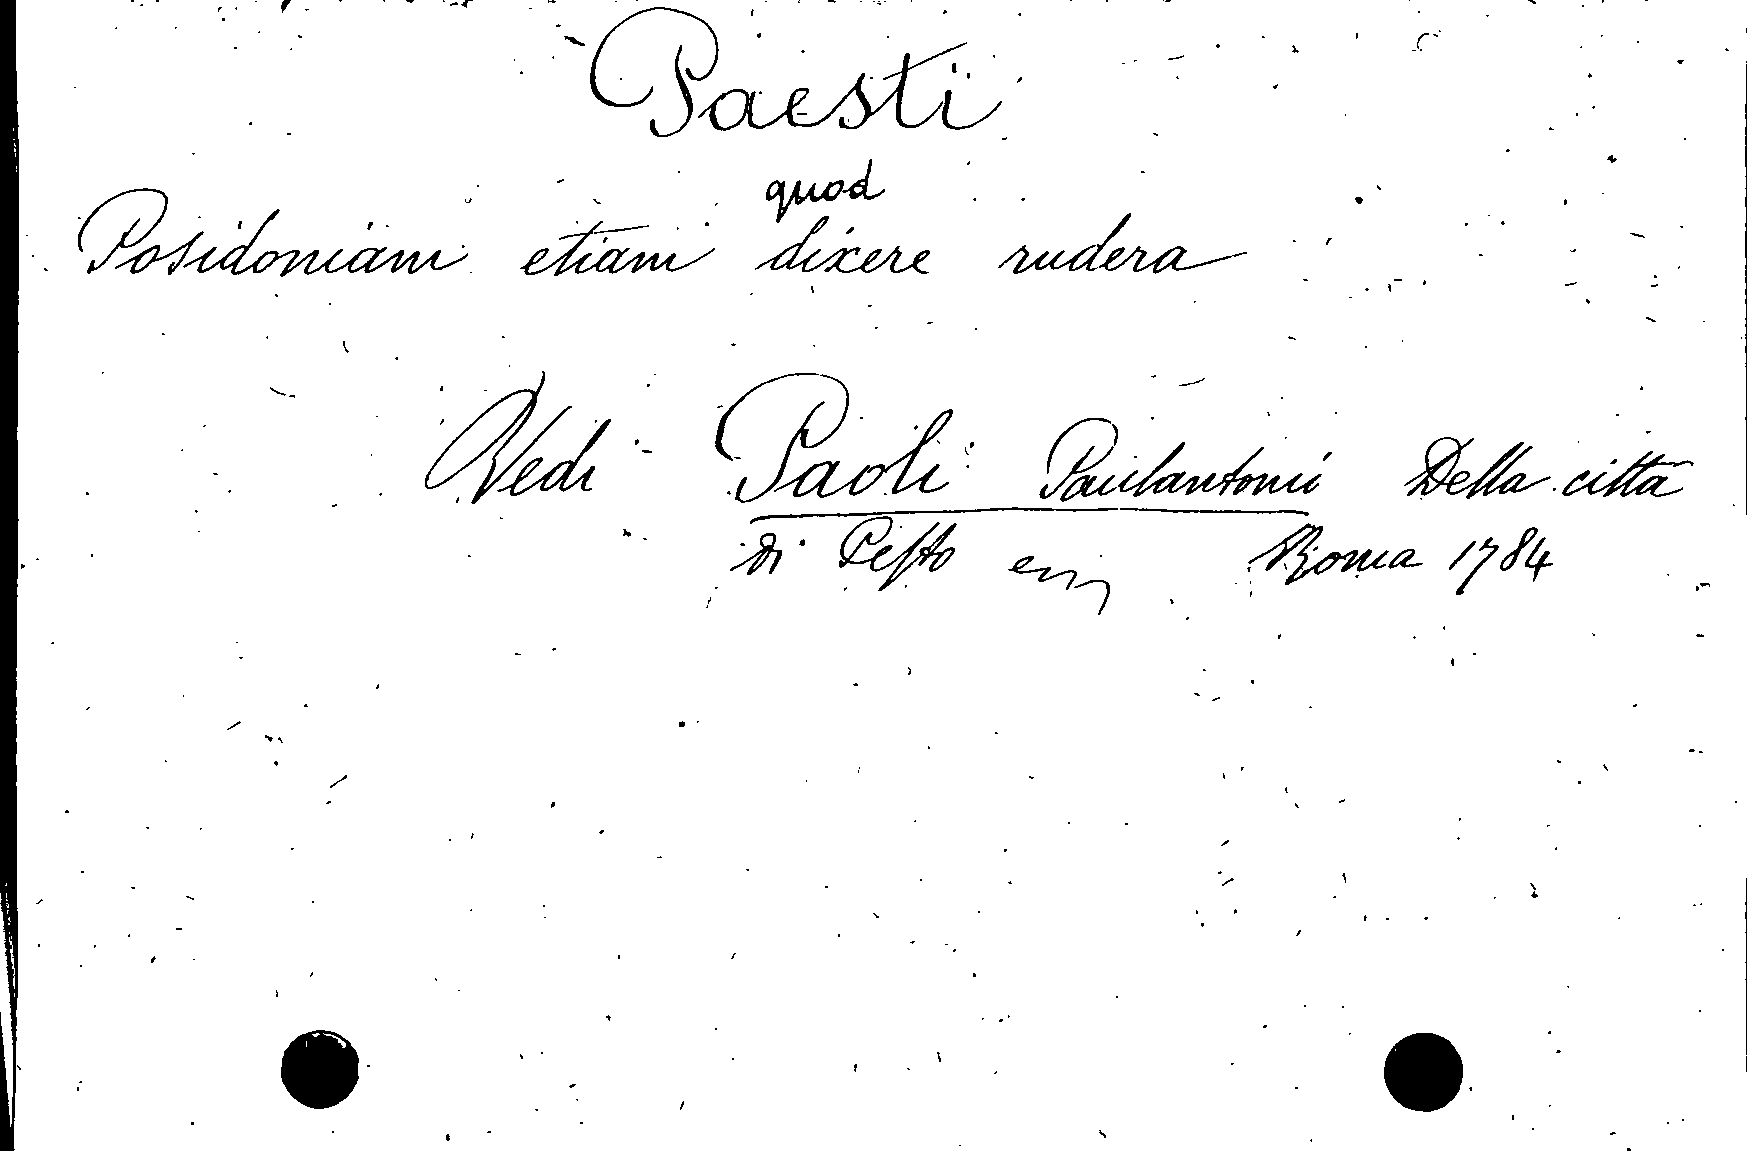 Paesti
quod
Posidoniam etiam dixere rudera
Vedi Paoli Paulantonii Della città
di Pesto Roma 1784